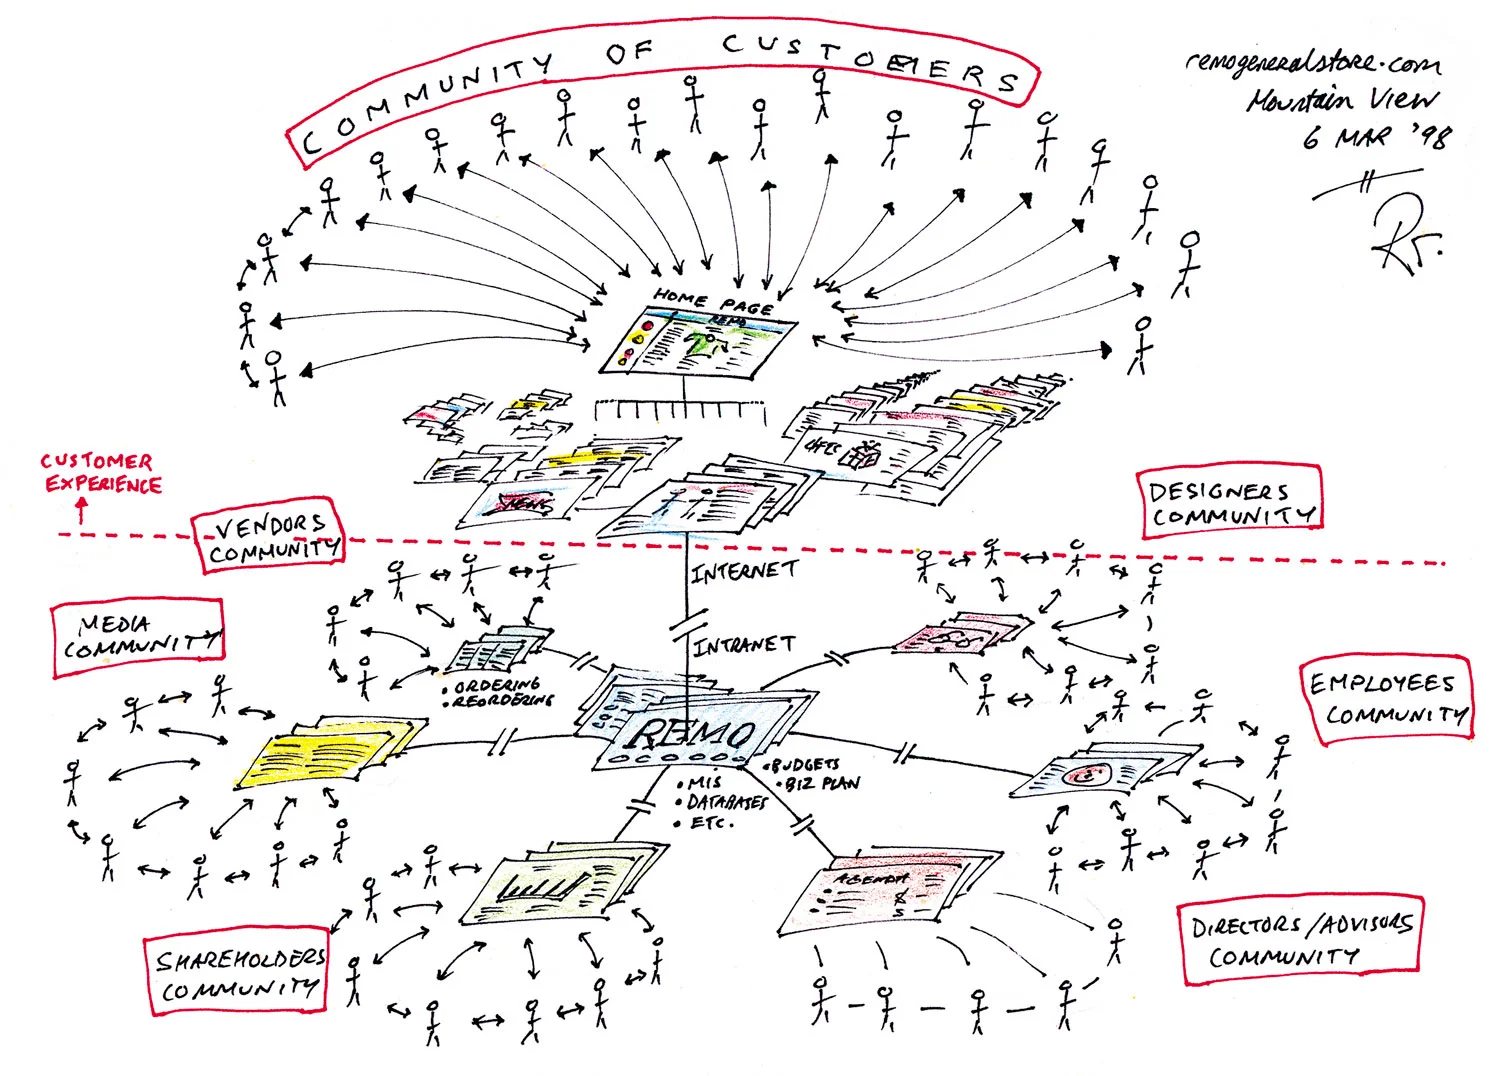 COMMUNITY OF CUSTOMERS
remogeneralstore.com
Mountain View
6 MAR '98
Rr.
HOME PAGE
REMO
CUSTOMER
EXPERIENCE
VENDORS
COMMUNITY
DESIGNERS
COMMUNITY
MEDIA
COMMUNITY
INTERNET
INTRANET
• ORDERING
• REORDERING
EMPLOYEES
COMMUNITY
REMO
• MIS
• DATABASES
• ETC.
• BUDGETS
• BIZ PLAN
AGENDA
$
SHAREHOLDERS
COMMUNITY
DIRECTORS/ADVISORS
COMMUNITY